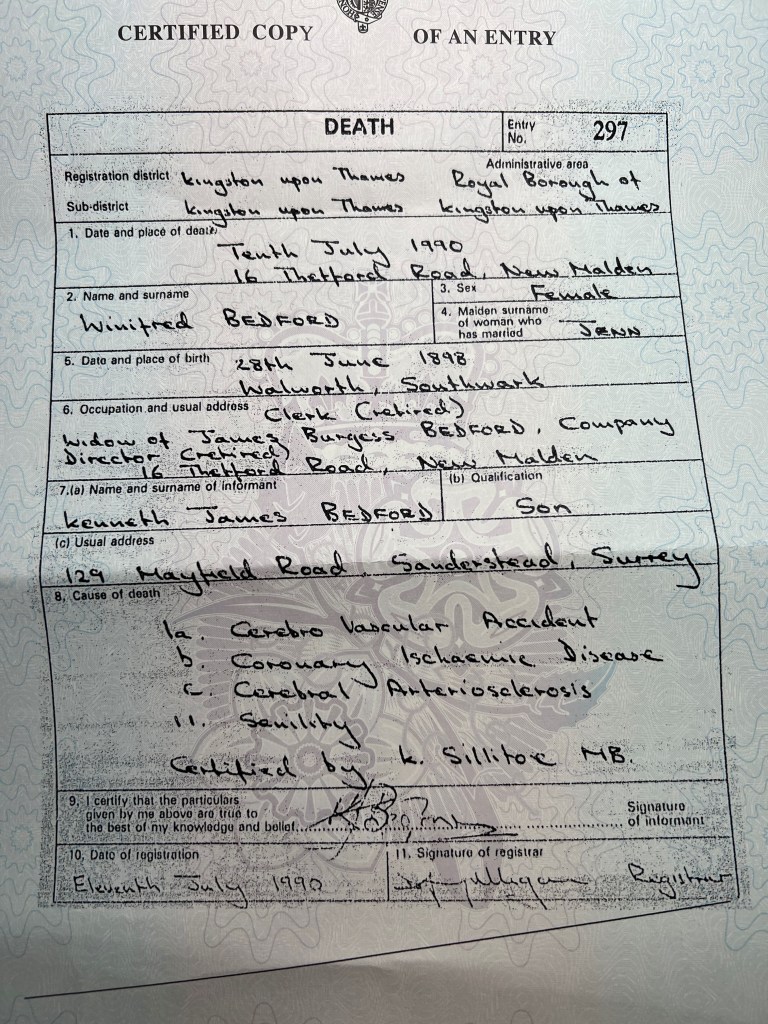 CERTIFIED COPY OF AN ENTRY
DEATH
Entry No. 297
Administrative area
Registration district Kingston upon Thames Royal Borough of
Sub-district Kingston upon Thames Kingston upon Thames
1. Date and place of death
Tenth July 1990
16 Thetford Road, New Malden
2. Name and surname
Winifred BEDFORD
3. Sex Female
4. Maiden surname
of woman who
has married JENN
5. Date and place of birth 28th June 1898
Walworth, Southwark
6. Occupation and usual address Clerk (retired)
Widow of James Burgess BEDFORD, Company
Director (retired)
16 Thetford Road, New Malden
7.(a) Name and surname of informant
Kenneth James BEDFORD
(b) Qualification
Son
(c) Usual address
129 Mayfield Road, Sanderstead, Surrey
8. Cause of death
1a. Cerebro Vascular Accident
b. Coronary Ischaemic Disease
c. Cerebral Arteriosclerosis
11. Senility
Certified by K. Sillitoe MB.
9. I certify that the particulars
given by me above are true to
the best of my knowledge and belief
Signature
of informant
10. Date of registration
Eleventh July 1990
11. Signature of registrar
Registrar